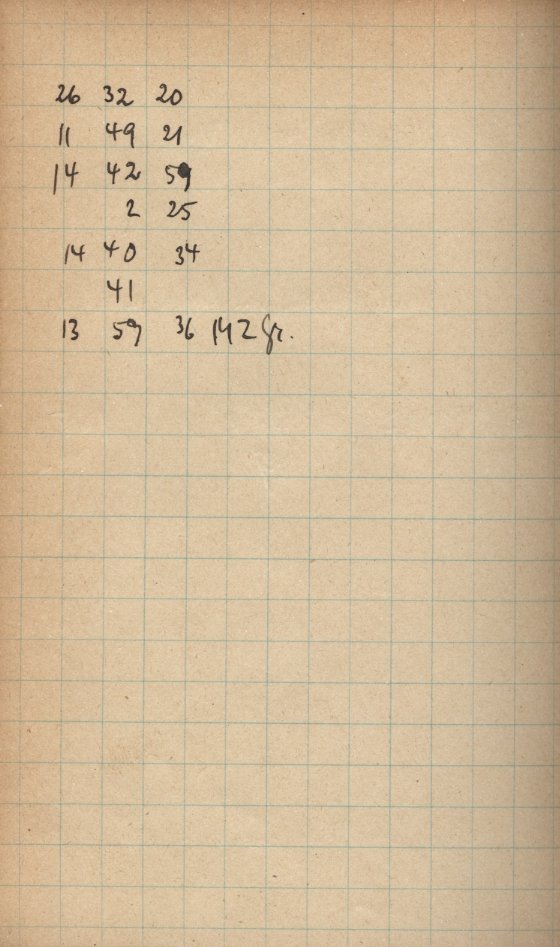 26 32 20
11 49 21
14 42 59
2 25
14 40 34
41
13 59 36 142 gr.